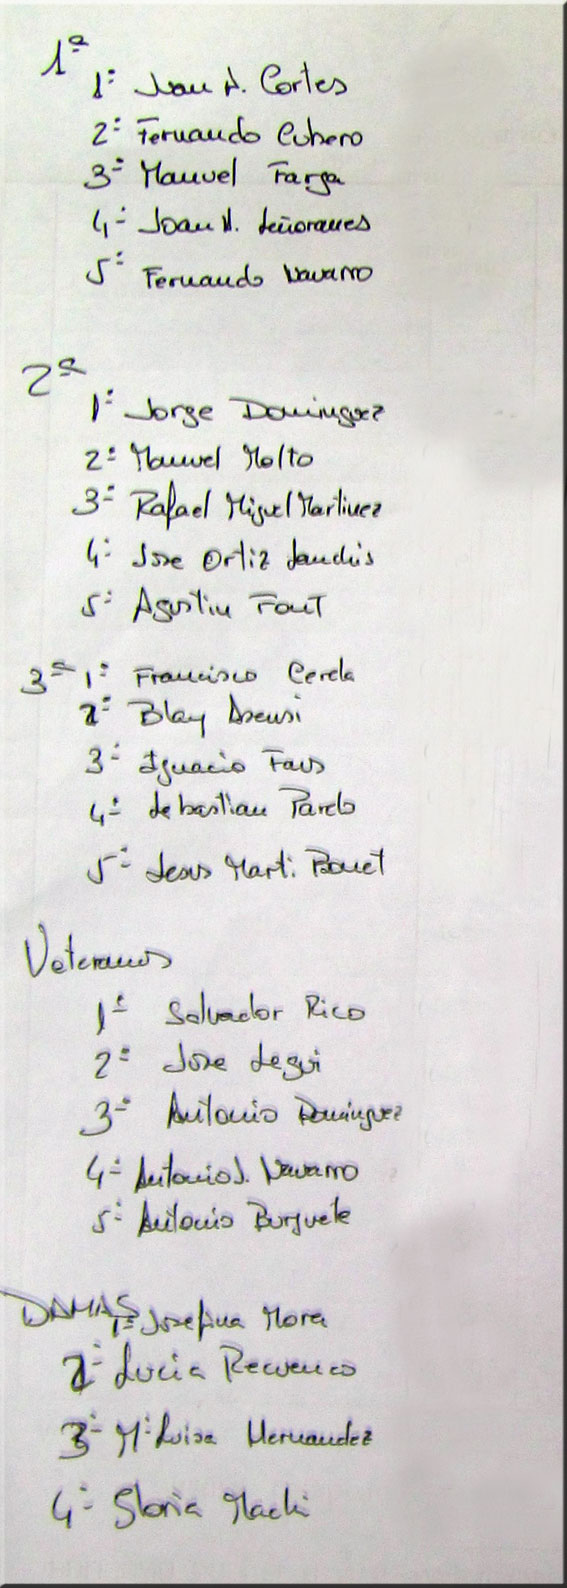 1ª
1º Juan A. Cortes
2º Fernando Cubero
3º Manuel Farga
4º Joan M. Señoranes
5º Fernando Navarro
2ª
1º Jorge Dominguez
2º Manuel Molto
3º Rafael Miguel Martinez
4º Jose Ortiz Sanchis
5º Agustin Font
3ª 1º Francisco Cerela
2º Blay Asensi
3º Ignacio Faus
4º Sebastian Pardo
5º Jesus Marti Bonet
Veteranos
1º Salvador Rico
2º Jose Segui
3º Antonio Dominguez
4º Antonio J. Navarro
5º Antonio Burguete
DAMAS 1ª Josefina Mora
2ª Lucia Recuenco
3ª Mª Luisa Hernandez
4ª Gloria Machi